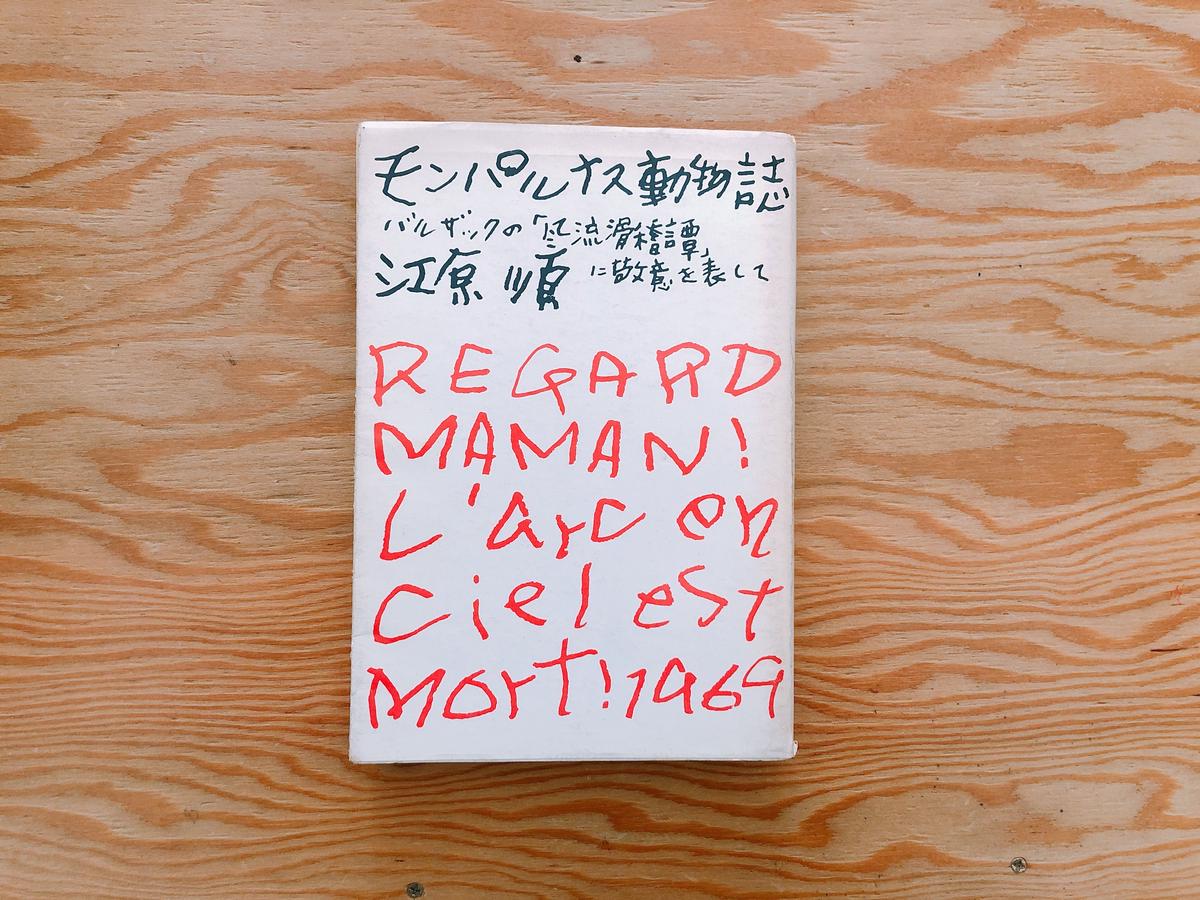 モンパルナス動物誌
バルザックの「風流滑稽譚」
江原 順 に敬意を表して
REGARD
MAMAN!
L'Arc en
Ciel est
Mort! 1969